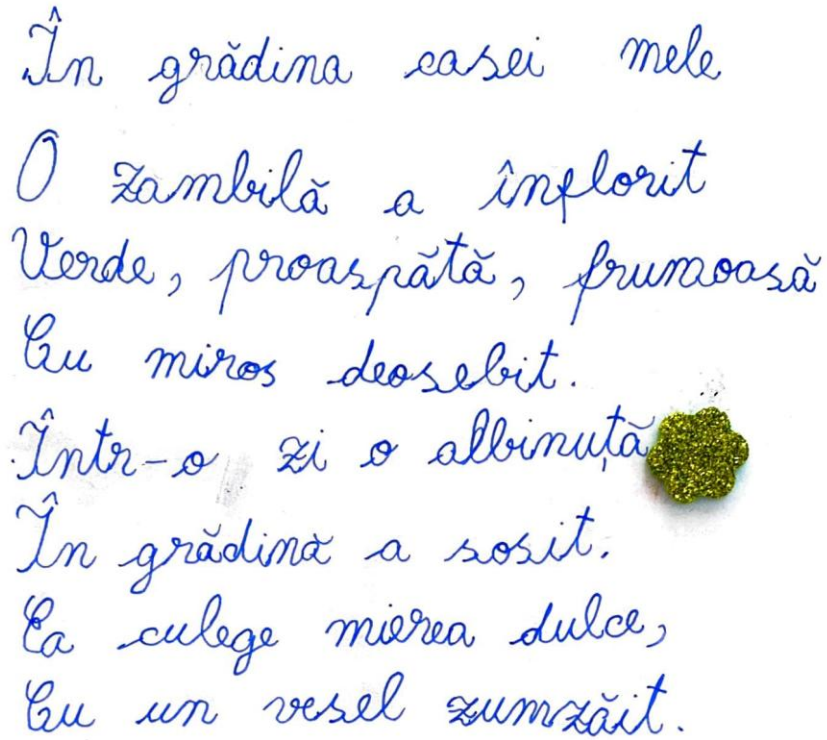 În grădina casei mele
O zambilă a înflorit
Verde, proaspătă, frumoasă
Cu miros deosebit.
Într-o zi o albinuță
În grădină a sosit.
Ea culege mierea dulce,
Cu un vesel zumzăit.